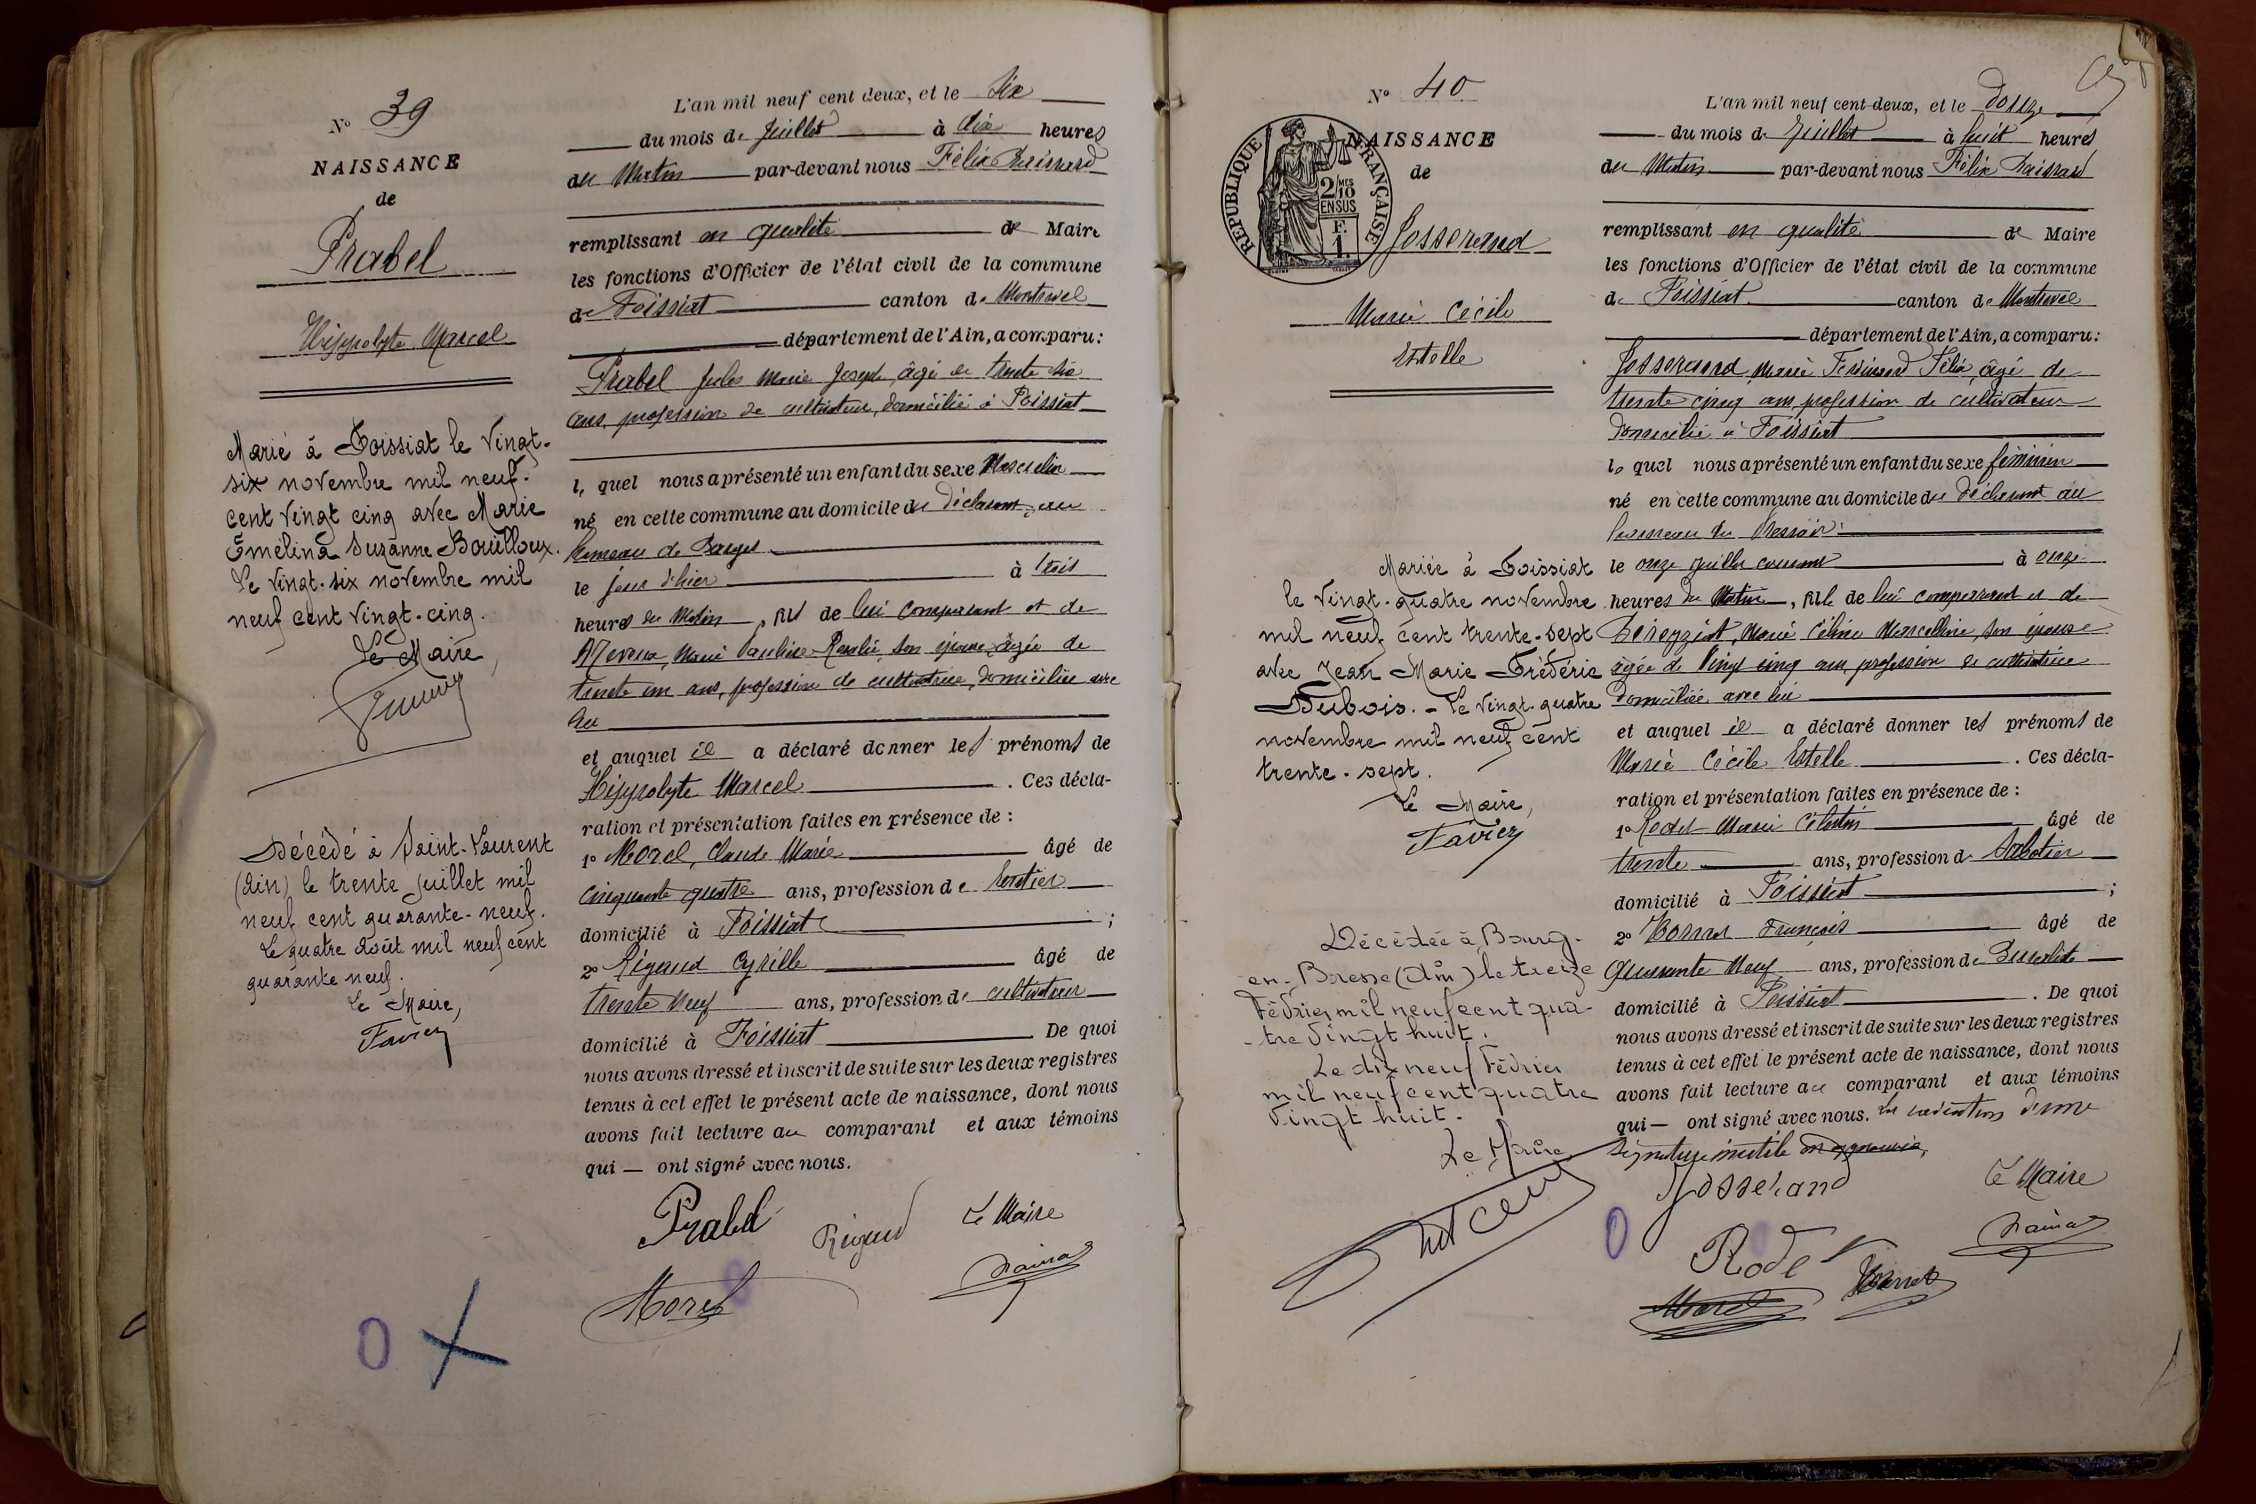 N° 39
NAISSANCE
de
Prabel
Hippolyte Marcel
Marié à Foissiat le Vingt-
six novembre mil neuf-
cent vingt cinq avec Marie
Emélina Suzanne Bouilloux.
Le vingt-six novembre mil
neuf cent vingt-cinq.
Le Maire,
Décédé à Saint-Laurent
(Ain) le trente Juillet mil
neuf cent quarante-neuf.
Le quatre Août mil neuf cent
quarante neuf.
Le Maire,
Favier
L'an mil neuf cent deux, et le Six
du mois de Juillet à dix heures
du Matin par-devant nous Félix
remplissant en qualité de Maire
les fonctions d'Officier de l'état civil de la commune
de Foissiat canton de Montrevel
département de l'Ain, a comparu:
Prabel Jules Marie Joseph, âgé de trente six
ans, profession de cultivateur, domicilié à Foissiat
le quel nous a présenté un enfant du sexe Masculin
né en cette commune au domicile du déclarant, au
hameau de
le jour d'hier à trois
heures du Matin, fils de lui comparant et de
Marie Pauline son épouse, âgée de
trente un ans, profession de cultivatrice, domiciliée avec
lui
et auquel il a déclaré donner les prénoms de
Hippolyte Marcel. Ces décla-
ration et présentation faites en présence de:
1° Morel, Claude Marie âgé de
cinquante quatre ans, profession de rentier
domicilié à Foissiat;
2° Rigaud Cyrille âgé de
trente neuf ans, profession de cultivateur
domicilié à Foissiat. De quoi
nous avons dressé et inscrit de suite sur les deux registres
tenus à cet effet le présent acte de naissance, dont nous
avons fait lecture au comparant et aux témoins
qui — ont signé avec nous.
Prabel
Rigaud
Le Maire
Morel
0 X
N° 40
NAISSANCE
de
RÉPUBLIQUE FRANÇAISE
2/10 MES
EN SUS
F.
1.
Josserand
Marie Cécile
Estelle
Mariée à Foissiat
le Vingt-quatre novembre
mil neuf cent trente-sept
avec Jean Marie Frédéric
Dubois. - Le Vingt-quatre
novembre mil neuf cent
trente-sept.
Le Maire,
Favier
Décédée à Bourg-
en-Bresse (Ain) le treize
Février mil neuf cent qua-
-tre Vingt huit.
Le dix neuf Février
mil neuf cent quatre
Vingt huit.
Le Maire
L'an mil neuf cent deux, et le Douze
du mois de Juillet à huit heures
du Matin par-devant nous Félix
remplissant en qualité de Maire
les fonctions d'Officier de l'état civil de la commune
de Foissiat canton de Montrevel
département de l'Ain, a comparu:
Josserand Marie Ferdinand Félix, âgé de
trente cinq ans, profession de cultivateur
domicilié à Foissiat
le quel nous a présenté un enfant du sexe féminin
né en cette commune au domicile du déclarant au
hameau du
le onze juillet courant à onze
heures du Matin, fille de lui comparant et de
Marie Céline Marcelline son épouse
âgée de Vingt cinq ans, profession de cultivatrice
domiciliée avec lui
et auquel il a déclaré donner les prénoms de
Marie Cécile Estelle. Ces décla-
ration et présentation faites en présence de:
1° Rodet Marie Célestin âgé de
trente ans, profession de Sabotier
domicilié à Foissiat;
2° François âgé de
Quarante Neuf ans, profession de
domicilié à Foissiat. De quoi
nous avons dressé et inscrit de suite sur les deux registres
tenus à cet effet le présent acte de naissance, dont nous
avons fait lecture au comparant et aux témoins
qui — ont signé avec nous. La radiation d'une
signature inutile
Josserand
Le Maire
0
Rodet
Morel